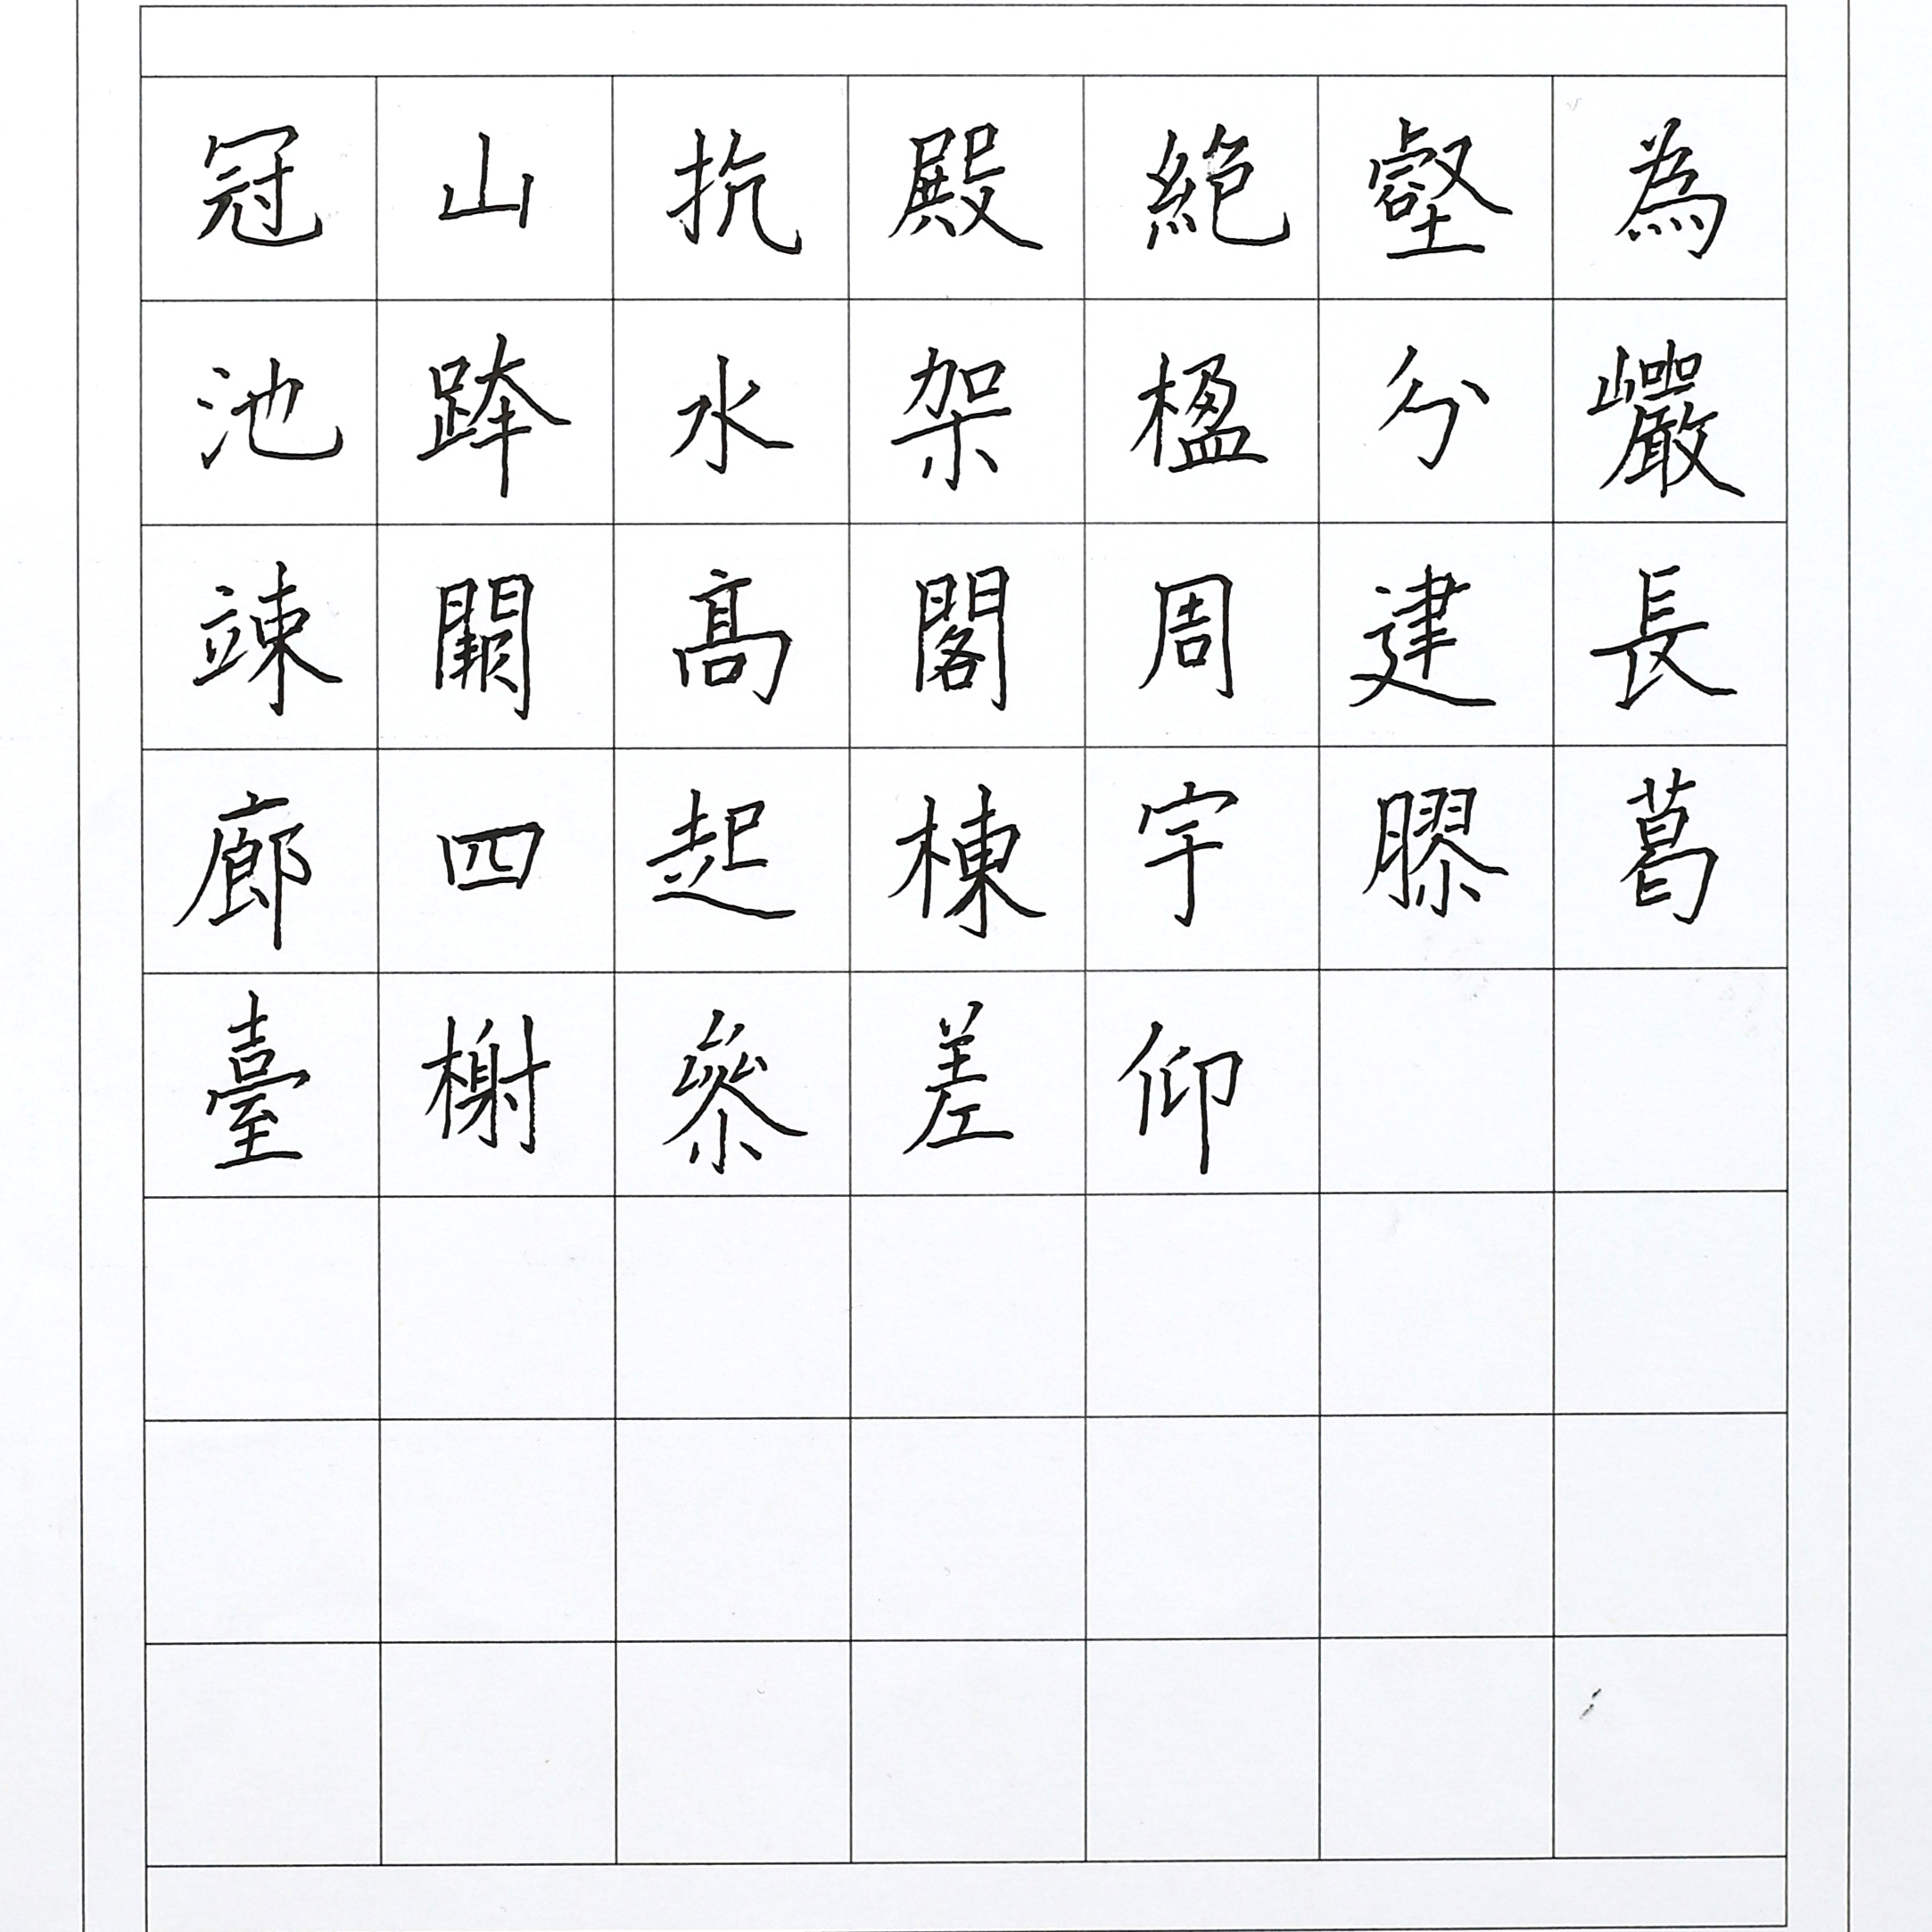 冠山抗殿絕壑為
池跨水架楹分巖
竦闕高閣周建長
廊四起棟宇膠葛
臺榭參差仰